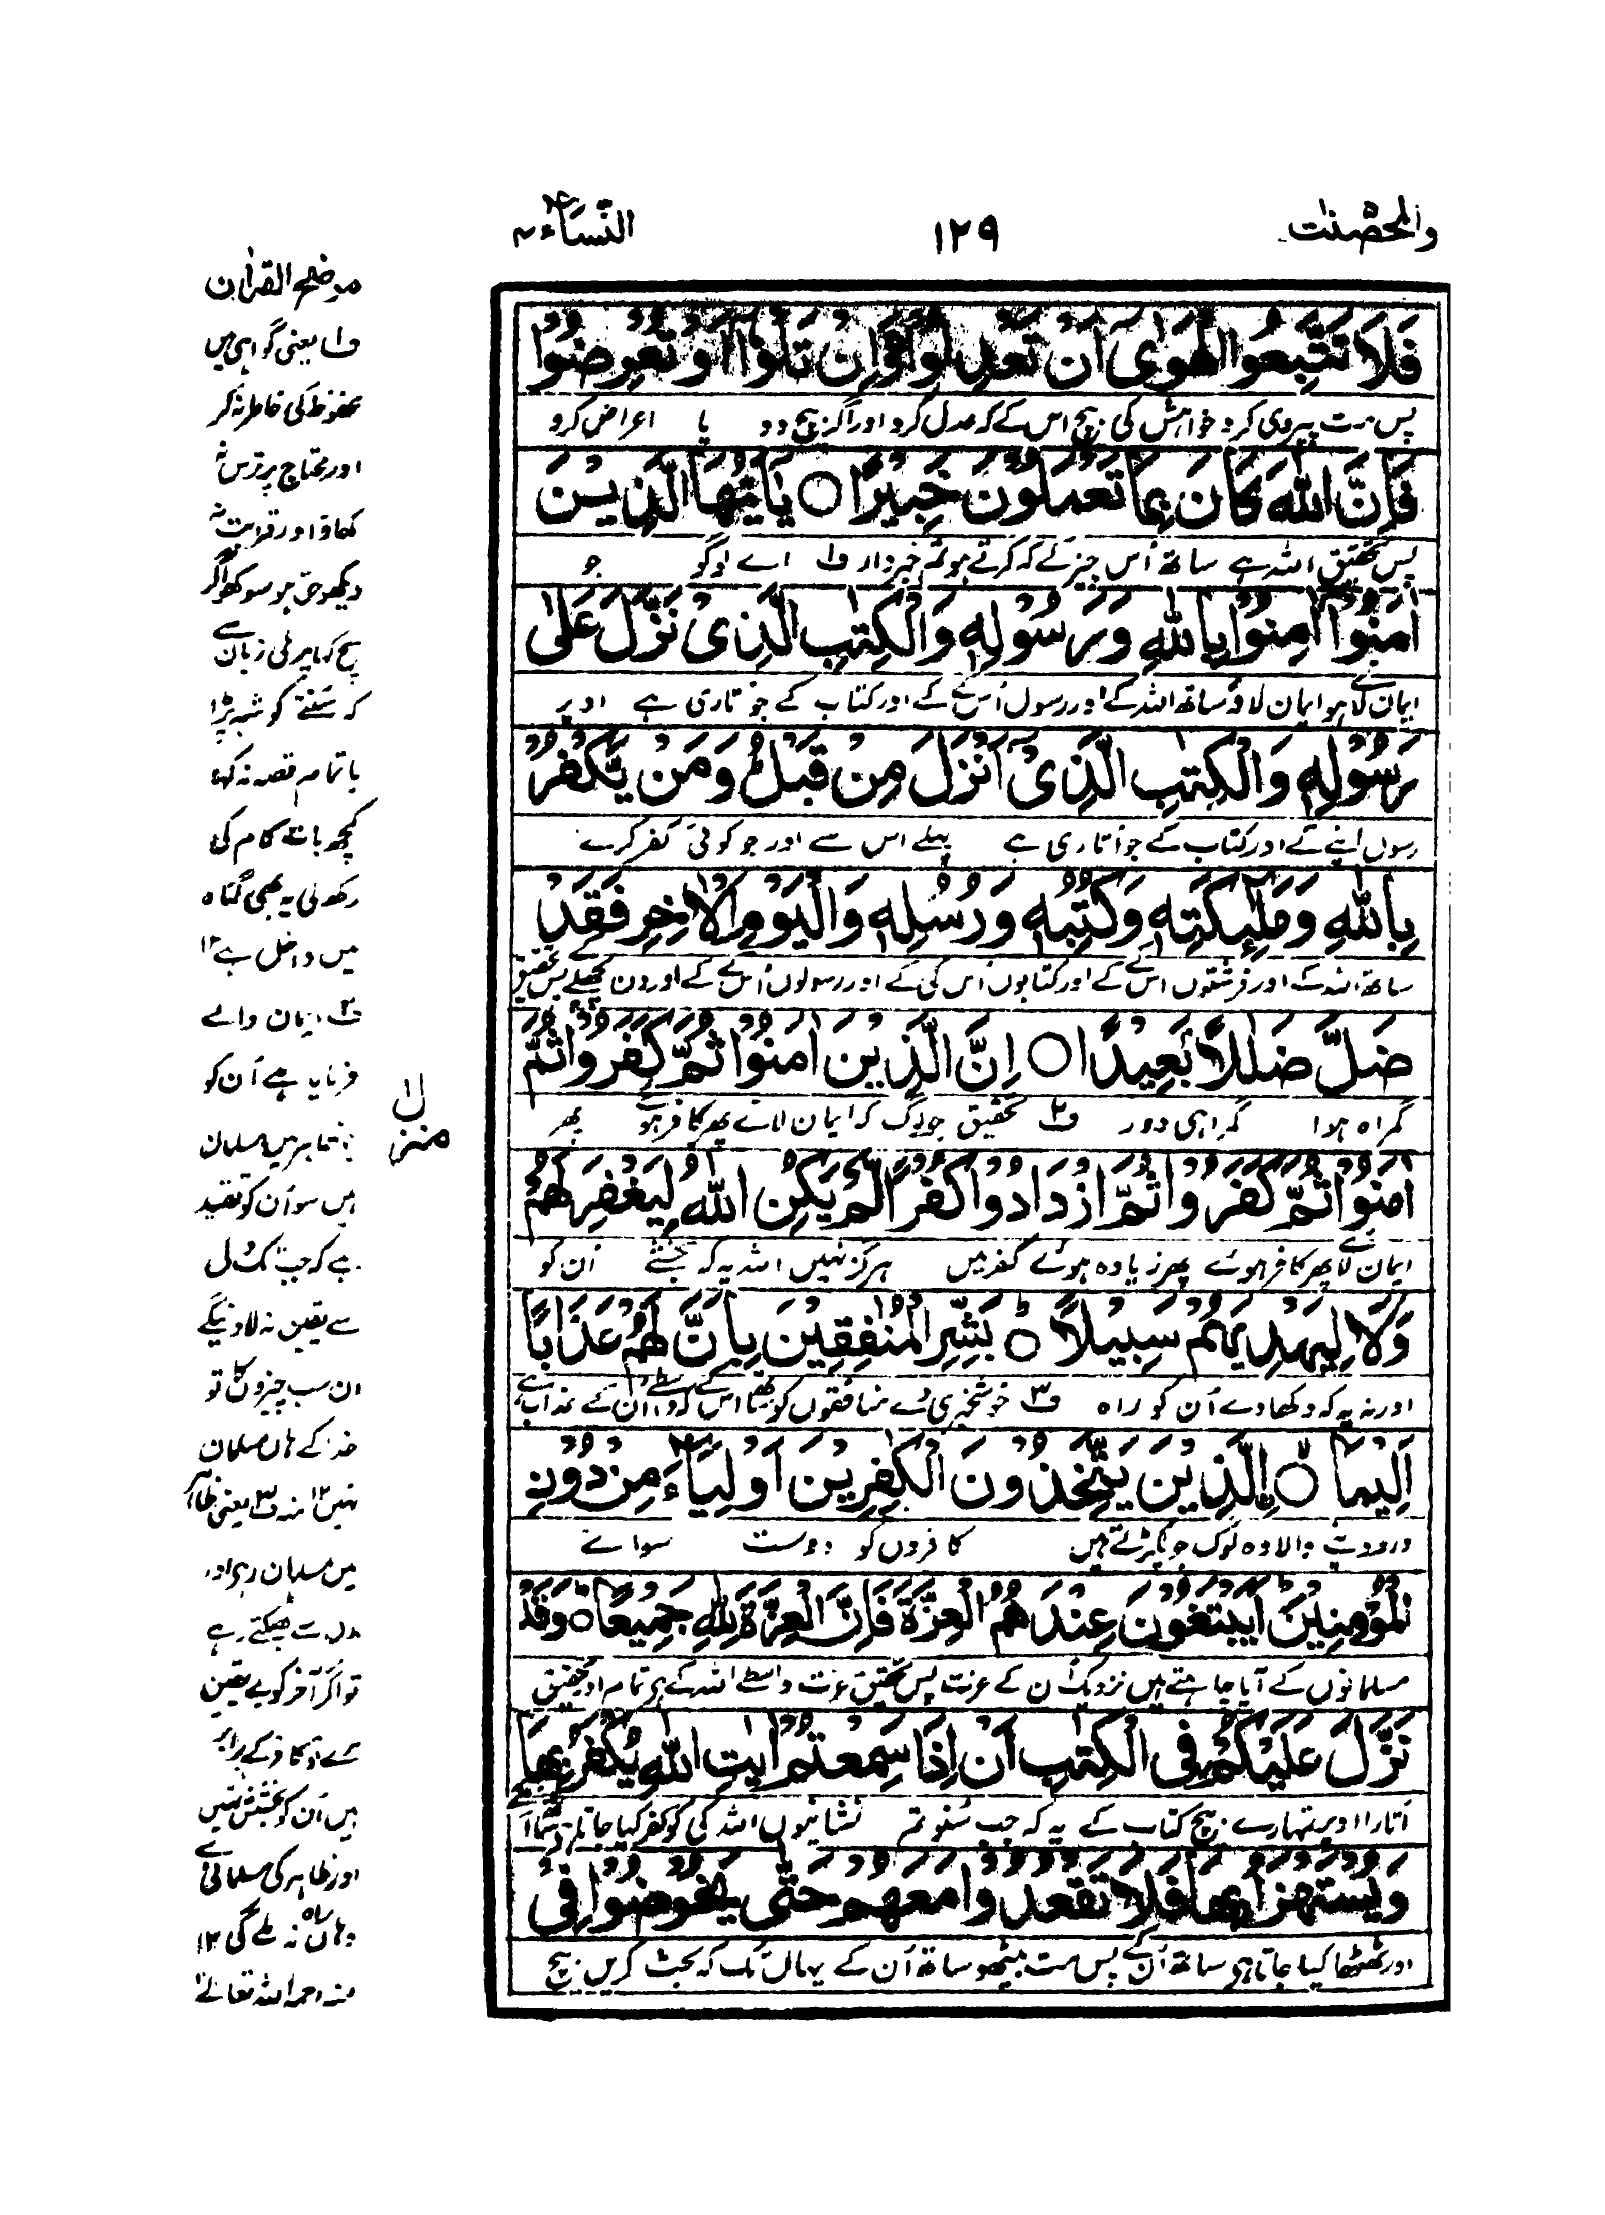 والمحصنت
١٢٩
النساء ٤
فَلَا تَتَّبِعُوا الْهَوٰٓى اَنْ تَعْدِلُوْا وَاِنْ تَلْوٗٓا اَوْ تُعْرِضُوْا
پس مت پیروی کرو خواہش کی بیچ اس کے کہ عدل کرو اور اگر پیچ دو یا اعراض کرو
فَاِنَّ اللّٰهَ كَانَ بِمَا تَعْمَلُوْنَ خَبِيْرًا ○ يٰٓاَيُّهَا الَّذِيْنَ
پس تحقیق اللہ ہے ساتھ اُس چیز کے کہ کرتے ہو تم خبردار ف۱ اے لوگو جو
اٰمَنُوْٓا اٰمِنُوْا بِاللّٰهِ وَرَسُوْلِهٖ وَالْكِتٰبِ الَّذِيْ نَزَّلَ عَلٰى
ایمان لائے ہو ایمان لاؤ ساتھ اللہ کے اور رسول اُس کے کے اور کتاب کے جو اتاری ہے اوپر
رَسُوْلِهٖ وَالْكِتٰبِ الَّذِيْٓ اَنْزَلَ مِنْ قَبْلُ ؕ وَمَنْ يَّكْفُرْ
رسول اپنے کے اور کتاب کے جو اُتاری ہے پہلے اس سے اور جو کوئی کفر کرے
بِاللّٰهِ وَمَلٰٓئِكَتِهٖ وَكُتُبِهٖ وَرُسُلِهٖ وَالْيَوْمِ الْاٰخِرِ فَقَدْ
ساتھ اللہ کے اور فرشتوں اس کے کے اور کتابوں اُس کی کے اور رسولوں اُس کے کے اور دن پچھلے کے پس تحقیق
ضَلَّ ضَلٰلًاۢ بَعِيْدًا ○ اِنَّ الَّذِيْنَ اٰمَنُوْا ثُمَّ كَفَرُوْا ثُمَّ
گمراہ ہوا گمراہی دور ف۲ تحقیق جو لوگ کہ ایمان لائے پھر کافر ہوئے پھر
اٰمَنُوْا ثُمَّ كَفَرُوْا ثُمَّ ازْدَادُوْا كُفْرًا لَّمْ يَكُنِ اللّٰهُ لِيَغْفِرَ لَهُمْ
ایمان لائے پھر کافر ہوئے پھر زیادہ ہوئے کفر میں ہرگز نہیں اللہ یہ کہ بخشے اُن کو
وَلَا لِيَهْدِيَهُمْ سَبِيْلًا ○ؕ بَشِّرِ الْمُنٰفِقِيْنَ بِاَنَّ لَهُمْ عَذَابًا
اور نہ یہ کہ دکھاوے اُن کو راہ ف۳ خوشخبری دے منافقوں کو ساتھ اس کے کہ واسطے اُن کے عذاب ہے
اَلِيْمًا ○ۙ اِلَّذِيْنَ يَتَّخِذُوْنَ الْكٰفِرِيْنَ اَوْلِيَآءَ مِنْ دُوْنِ
درد دینے والا وہ لوگ جو پکڑتے ہیں کافروں کو دوست سوائے
الْمُؤْمِنِيْنَ ؕ اَيَبْتَغُوْنَ عِنْدَهُمُ الْعِزَّةَ فَاِنَّ الْعِزَّةَ لِلّٰهِ جَمِيْعًا ○ؕ وَقَدْ
مسلمانوں کے آیا چاہتے ہیں نزدیک اُن کے عزت پس تحقیق عزت واسطے اللہ کے ہے تمام اور تحقیق
نَزَّلَ عَلَيْكُمْ فِي الْكِتٰبِ اَنْ اِذَا سَمِعْتُمْ اٰيٰتِ اللّٰهِ يُكْفَرُ بِهَا
اُتارا اوپر تمہارے بیچ کتاب کے یہ کہ جب سنو تم نشانیوں اللہ کی کو کفر کیا جاتا ہے
وَيُسْتَهْزَاُ بِهَا فَلَا تَقْعُدُوْا مَعَهُمْ حَتّٰى يَخُوْضُوْا فِيْ
اور ٹھٹھا کیا جاتا ہے ساتھ اُن کے پس مت بیٹھو ساتھ اُن کے یہاں تک کہ بحث کریں بیچ
موضح القرآن
ف۱ یعنی گواہی میں
محفوظ کی خاطر نہ کر
اور محتاج پر ترس نہ
کھاؤ اور قرابت نہ
دیکھو حق ہو سو کہو اگر
سچ کہا پر ملی زبان سے
کہ سننے کو شبہ پڑا
یا تمام قصہ نہ کہا
کچھ بات کام کی
رکھ لی یہ بھی گناہ
میں داخل ہے ۱۲
ف۲ ایمان والے
فرمایا ہے اُن کو
ظاہر میں مسلمان
ہیں سو اُن کو تقید
ہے کہ جب تک دل
سے یقین نہ لاویگے
ان سب چیزوں کا تو
خدا کے ہاں مسلمان
نہیں ۱۲ منہ ف۳ یعنی ظاہر
میں مسلمان رہے اور
دل سے بھٹکتے رہے
تو اگر آخر کو بے یقین
مرے تو کافر کے برابر
ہیں اُن کو بخشش نہیں
اور ظاہر کی مسلمانی سے
وہاں راہ نہ ملے گی ۱۲
منہ رحمہ اللہ تعالےٰ
منزل ۱